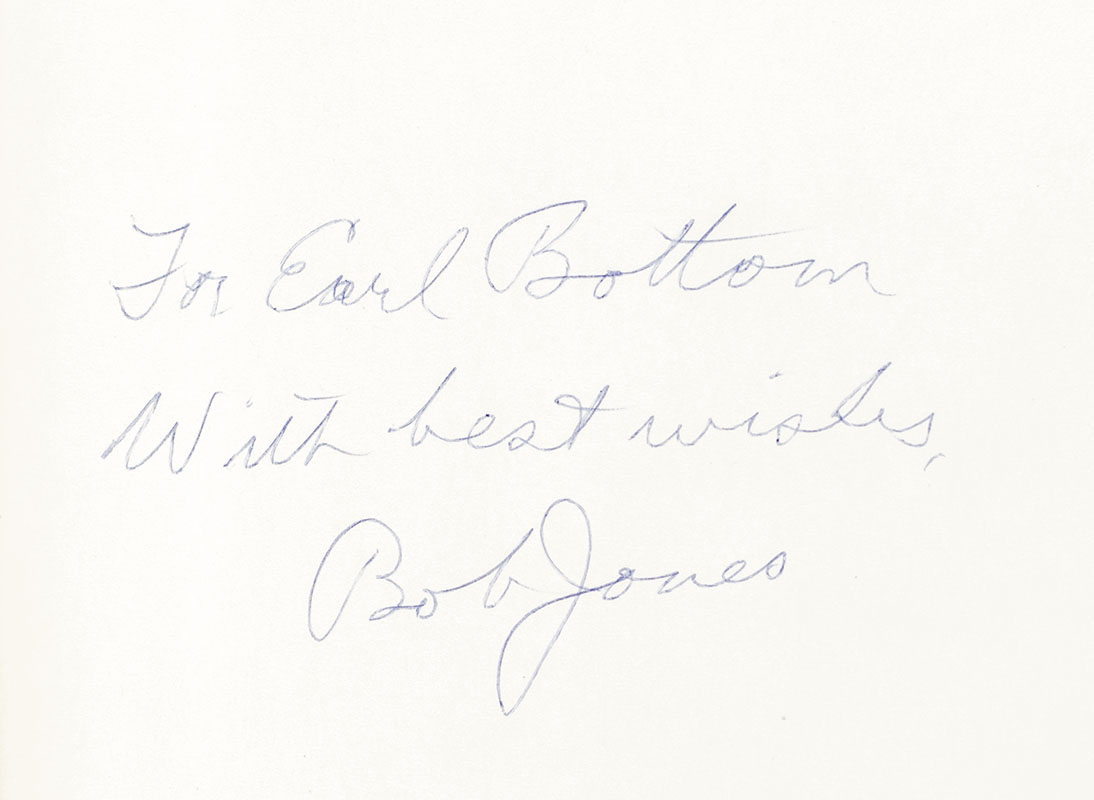 For Earl Bottom
With best wishes,
Bob Jones